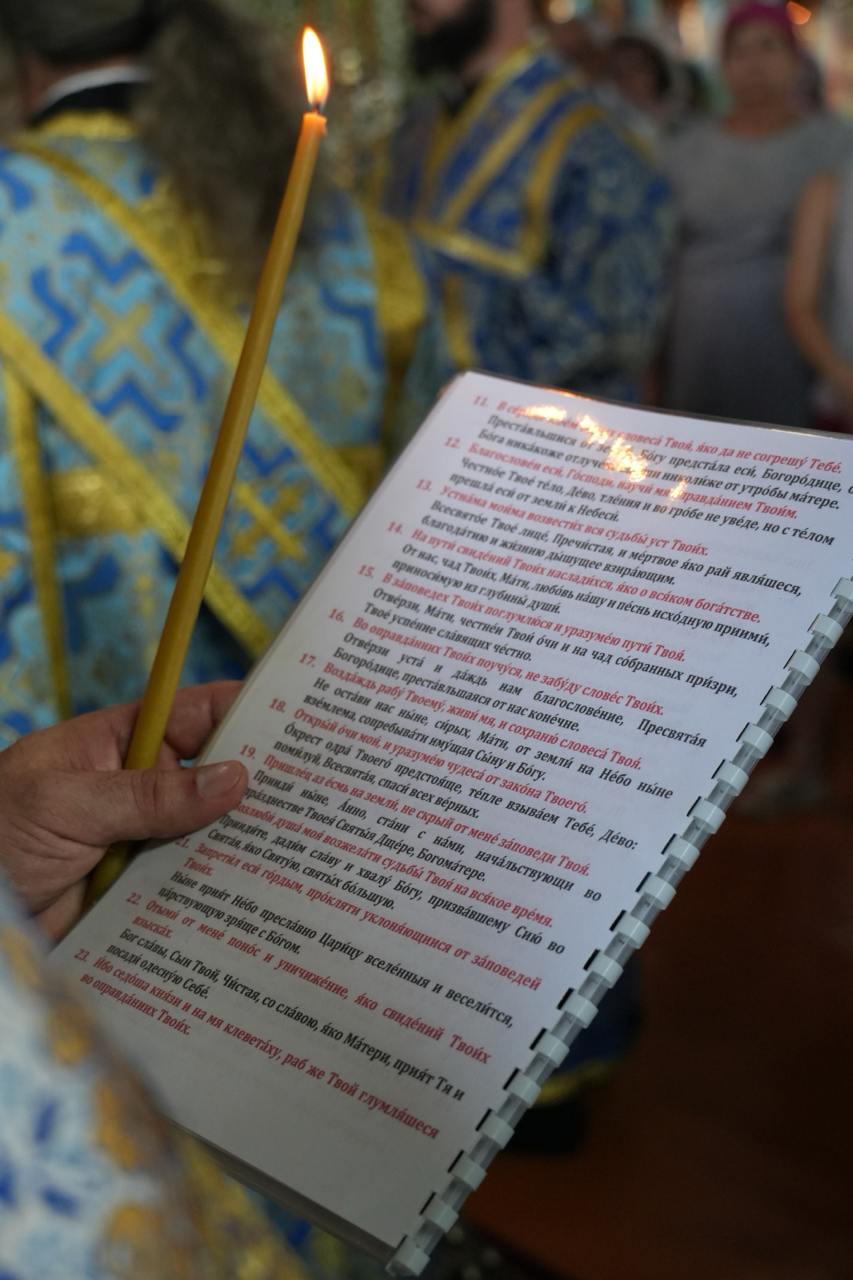 11. В словеса́ Твоя́, я́ко да не согрешу́ Тебе́.
Преста́вльшися от Бо́гу предста́ла еси́, Богоро́дице, о
Бо́га ника́коже николи́же от утро́бы ма́тере.
12. Благослове́н еси́, Го́споди, научи́ мя оправда́нием Твои́м.
Честно́е Твое́ те́ло, Де́во, тле́ния и во гро́бе не уве́де, но с те́лом
прешла́ еси́ от земли́ к Небеси́.
13. Устна́ма мои́ма возвести́х вся судьбы́ уст Твои́х.
Всесвято́е Твое́ лице́, Пречи́стая, и ме́ртвое я́ко рай явля́шеся,
благода́тию и жи́знию ды́шущее взира́ющим.
14. На пути́ свиде́ний Твои́х наслади́хся, я́ко о вся́ком бога́тстве.
От нас, чад Твои́х, Ма́ти, любо́вь на́шу и песнь исхо́дную приими́,
приноси́мую из глубины́ души́.
15. В за́поведех Твои́х поглумлю́ся и уразуме́ю пути́ Твоя́.
Отве́рзи, Ма́ти, честне́и Твои́ о́чи и на чад со́бранных при́зри,
Твое́ успе́ние сла́вящих че́стно.
16. Во оправда́ниих Твои́х поучу́ся, не забу́ду слове́с Твои́х.
Отве́рзи уста́ и да́ждь нам благослове́ние, Пресвята́я
Богоро́дице, преста́вльшаяся от нас коне́чне.
17. Возда́ждь рабу́ Твоему́, живи́ мя, и сохраню́ словеса́ Твоя́.
Не оста́ви нас ны́не, си́рых, Ма́ти, от земли́ на Не́бо ны́не
взе́млема, сопребыва́ти иму́щая Сы́ну и Бо́гу.
18. Откры́й о́чи мои́, и уразуме́ю чудеса́ от зако́на Твоего́.
О́крест одра́ Твоего́ предстоя́ще, те́пле взыва́ем Тебе́, Де́во:
поми́луй, Всесвята́я, спаси́ всех ве́рных.
19. Пришле́ц аз е́смь на земли́, не скрый от мене́ за́поведи Твоя́.
Прииди́ ны́не, А́нно, ста́ни с на́ми, нача́льствующи во
пра́зднестве Твоея́ Святы́я Дще́ре, Богома́тере.
возлюби́ душа́ моя́ возжела́ти судьбы́ Твоя́ на вся́кое вре́мя.
Прииди́те, дади́м сла́ву и хвалу́ Бо́гу, призва́вшему Сию́ во
Свята́я, я́ко Святу́ю, святы́х бо́льшую.
21. Запрети́л еси́ го́рдым, про́кляти уклоня́ющиися от за́поведей
Твои́х.
Ны́не прия́т Не́бо пресла́вно Цари́цу вселе́нныя и весели́тся,
ца́рствующую зря́ще с Бо́гом.
22. Отыми́ от мене́ поно́с и уничиже́ние, я́ко свиде́ний Твои́х
взыска́х.
Бог сла́вы, Сын Твой, Чи́стая, со сла́вою, я́ко Ма́тери, прия́т Тя и
посади́ одесну́ю Себе́.
23. И́бо седо́ша кня́зи и на мя клевета́ху, раб же Твой глумля́шеся
во оправда́ниих Твои́х.